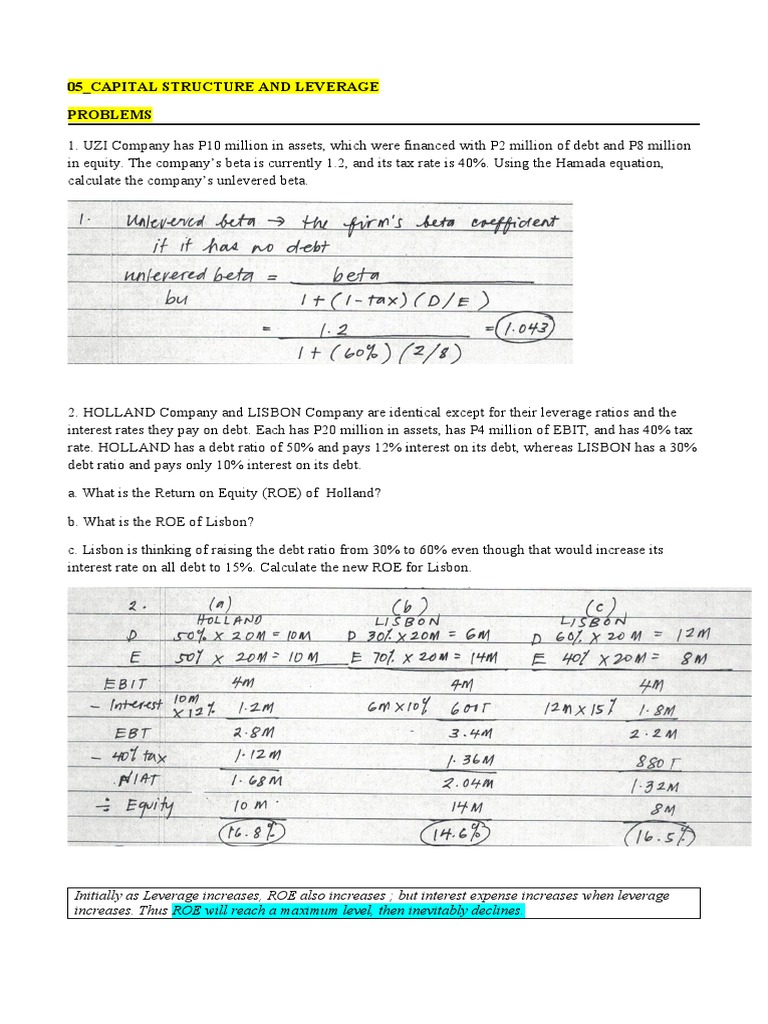 05_CAPITAL STRUCTURE AND LEVERAGE
PROBLEMS
1. UZI Company has P10 million in assets, which were financed with P2 million of debt and P8 million
in equity. The company's beta is currently 1.2, and its tax rate is 40%. Using the Hamada equation,
calculate the company's unlevered beta.
1. Unlevered beta → the firm's beta coefficient
if it has no debt
unlevered beta = beta
bu 1 + (1-tax) (D/E)
= 1.2 = 1.043
1 + (60%) (2/8)
2. HOLLAND Company and LISBON Company are identical except for their leverage ratios and the
interest rates they pay on debt. Each has P20 million in assets, has P4 million of EBIT, and has 40% tax
rate. HOLLAND has a debt ratio of 50% and pays 12% interest on its debt, whereas LISBON has a 30%
debt ratio and pays only 10% interest on its debt.
a. What is the Return on Equity (ROE) of Holland?
b. What is the ROE of Lisbon?
c. Lisbon is thinking of raising the debt ratio from 30% to 60% even though that would increase its
interest rate on all debt to 15%. Calculate the new ROE for Lisbon.
2. (a) (b) (c)
HOLLAND LISBON LISBON
D 50% X 20M = 10M D 30% X 20M = 6M D 60% X 20M = 12M
E 50% X 20M = 10M E 70% X 20M = 14M E 40% X 20M = 8M
EBIT 4M 4M 4M
- Interest 10M X 12% 1.2M 6M X 10% 600T 12M X 15% 1.8M
EBT 2.8M 3.4M 2.2M
- 40% tax 1.12M 1.36M 880T
NIAT 1.68M 2.04M 1.32M
÷ Equity 10M 14M 8M
16.8% 14.6% 16.5%
Initially as Leverage increases, ROE also increases ; but interest expense increases when leverage
increases. Thus ROE will reach a maximum level, then inevitably declines.